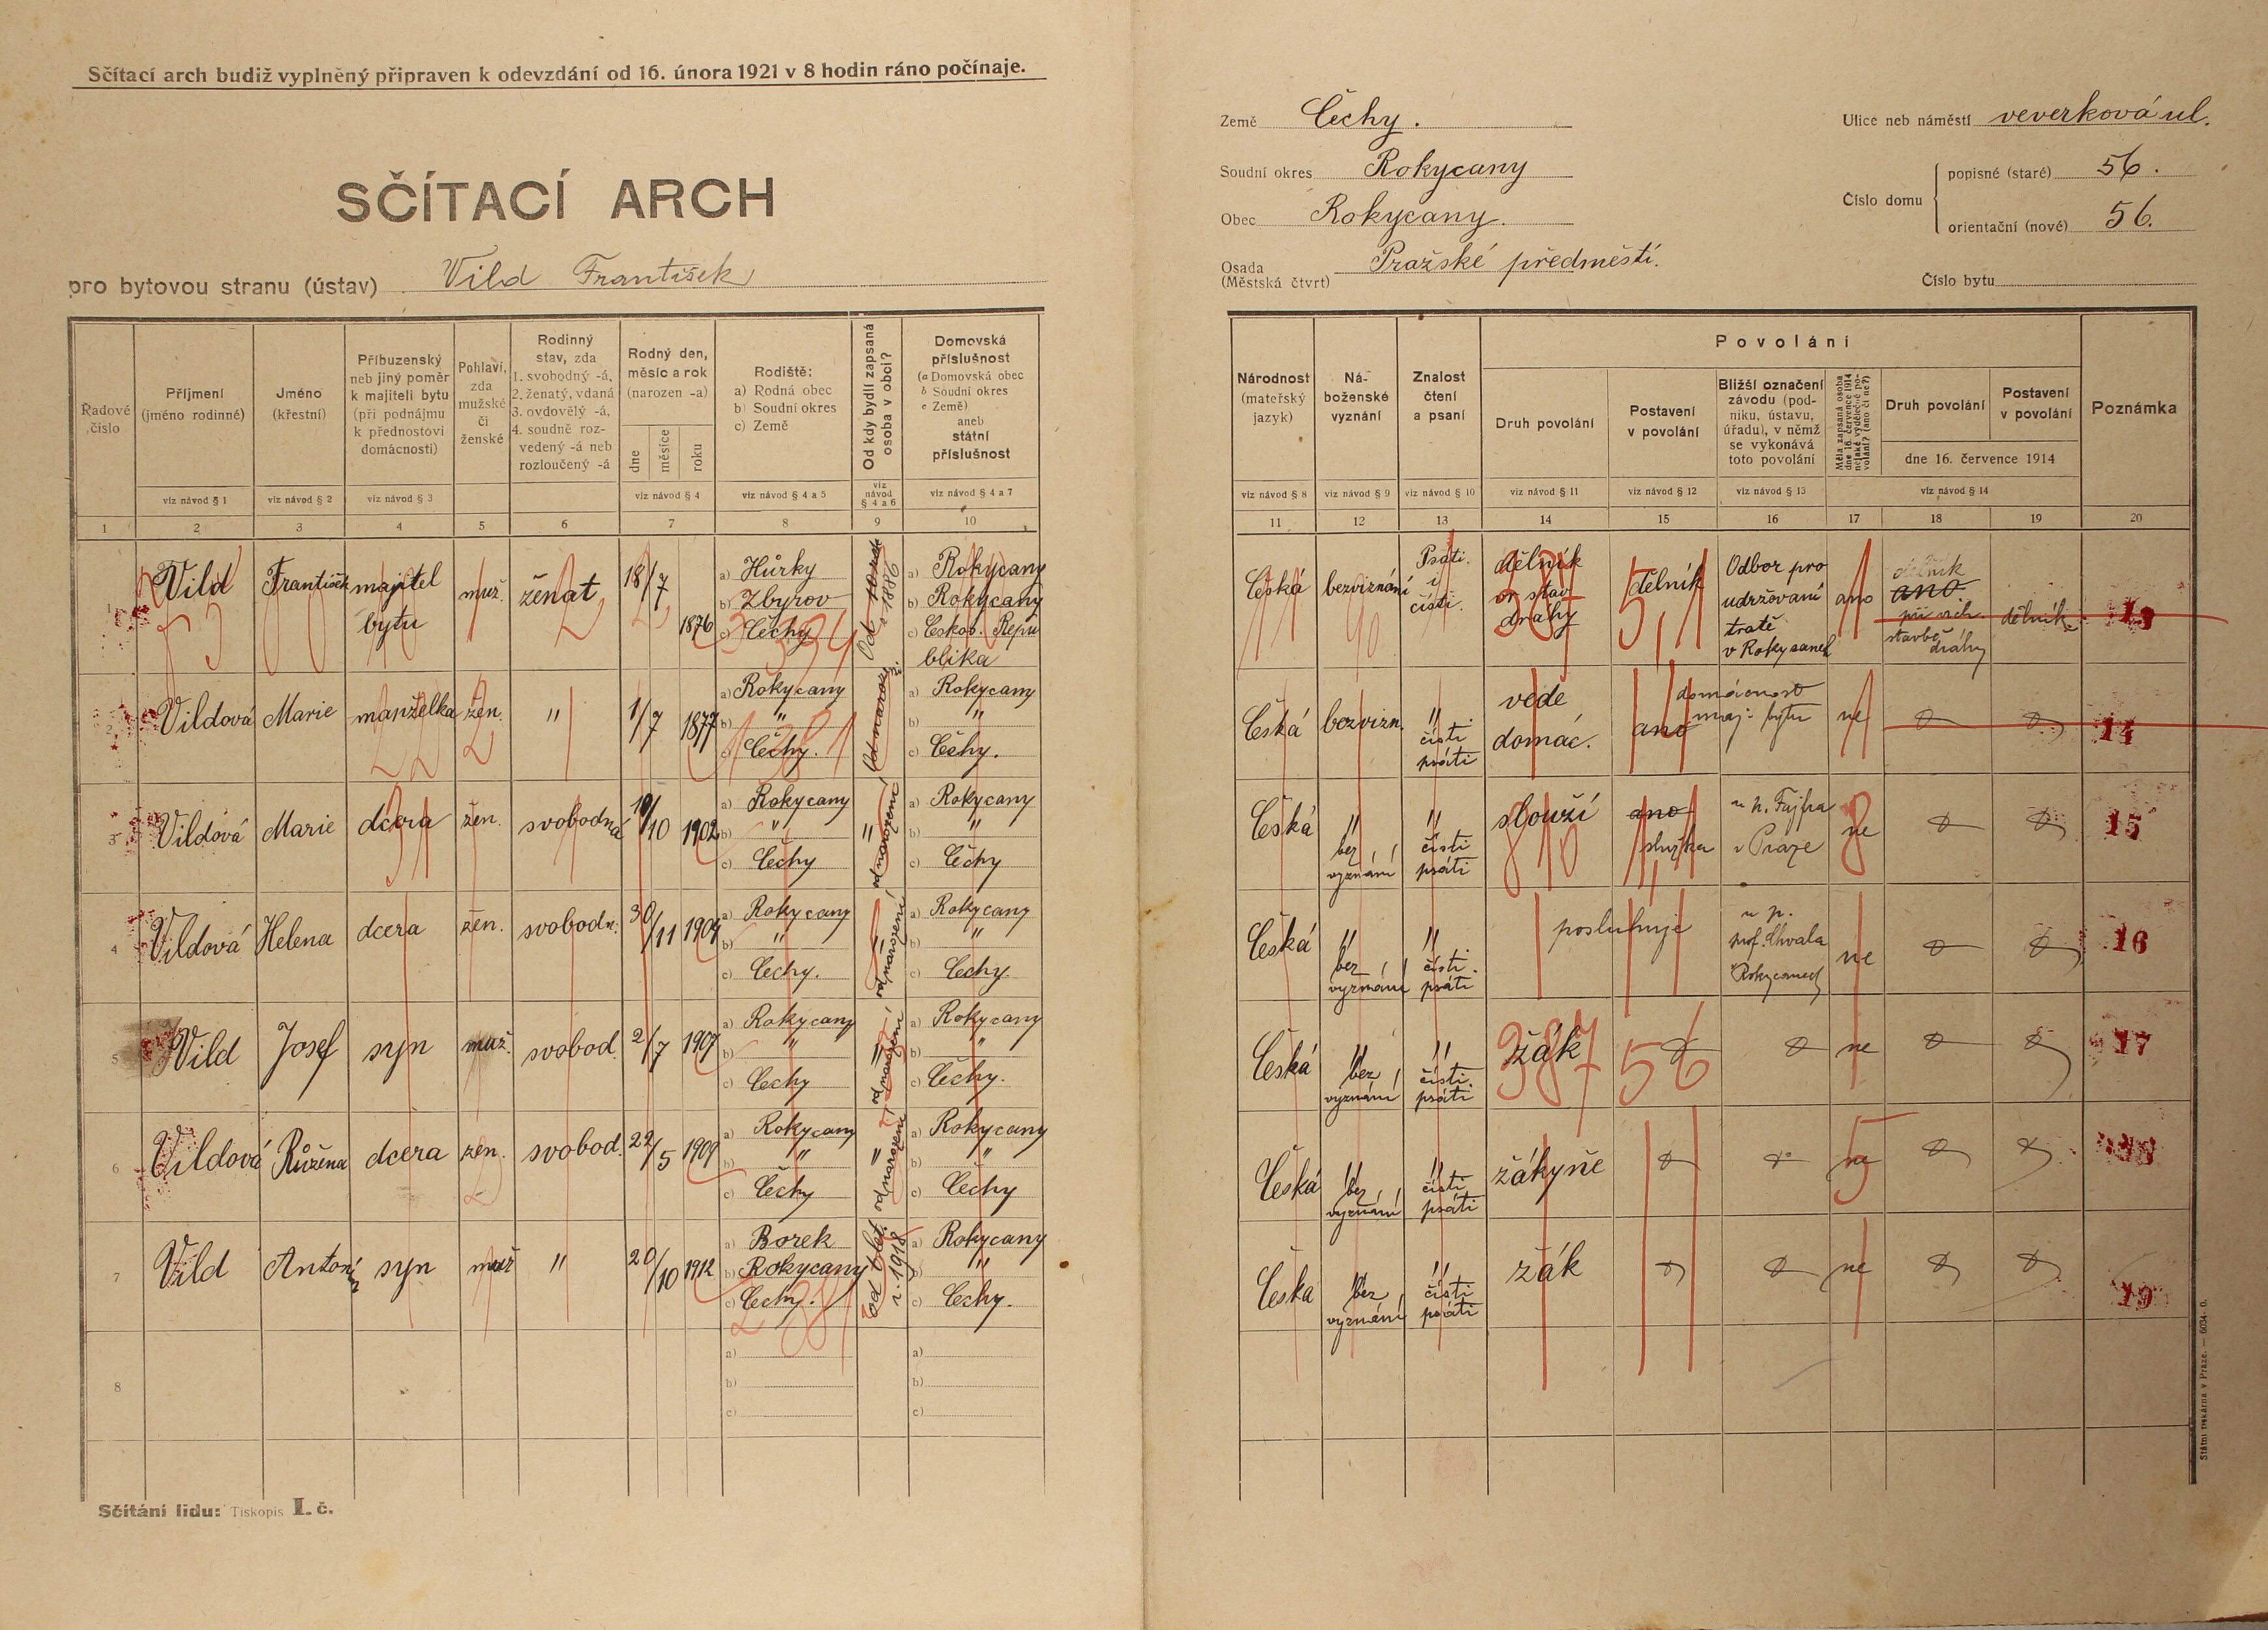 Sčítací arch budiž vyplněný připraven k odevzdání od 16. února 1921 v 8 hodin ráno počínaje.
SČÍTACÍ ARCH
pro bytovou stranu (ústav) Vild František
Země Čechy.
Soudní okres Rokycany
Obec Rokycany.
Osada (Městská čtvrt) Pražské předměstí.
Ulice neb náměstí veverková ul.
Číslo domu
popisné (staré) 56.
orientační (nové) 56.
Číslo bytu
Řadové číslo
Příjmení (jméno rodinné)
Jméno (křestní)
Příbuzenský neb jiný poměr k majiteli bytu (při podnájmu k přednostovi domácnosti)
Pohlaví, zda mužské či ženské
Rodinný stav, zda 1. svobodný -á, 2. ženatý, vdaná 3. ovdovělý -á, 4. soudně rozvedený -á neb rozloučený -á
Rodný den, měsíc a rok (narozen -a)
dne měsíce roku
Rodiště: a) Rodná obec b) Soudní okres c) Země
Od kdy bydlí zapsaná osoba v obci?
Domovská příslušnost (a Domovská obec b Soudní okres c Země) aneb státní příslušnost
viz návod § 1 viz návod § 2 viz návod § 3 viz návod § 4 viz návod § 4 a 5 viz návod § 4 a 6 viz návod § 4 a 7
1 2 3 4 5 6 7 8 9 10
Národnost (mateřský jazyk)
Náboženské vyznání
Znalost čtení a psaní
Povolání
Druh povolání
Postavení v povolání
Bližší označení závodu (podniku, ústavu, úřadu), v němž se vykonává toto povolání
Měla zapsaná osoba dne 16. července 1914 nějaké výdělečné povolání? (ano či ne?)
Druh povolání
Postavení v povolání
dne 16. července 1914
Poznámka
viz návod § 8 viz návod § 9 viz návod § 10 viz návod § 11 viz návod § 12 viz návod § 13 viz návod § 14
11 12 13 14 15 16 17 18 19 20
1 Vild František majitel bytu muž. ženat 18/7 1876 a) Hůrky b) Zbyrov c) Čechy a) Rokycany b) Rokycany c) Českos. Repu blika
Česká bezviznání Psáti i čísti. dělník dráhy dělník Odbor pro udržovaní tratě v Rokycanech ano dělník ano při stavbě dráhy dělník 13
2 Vildová Marie manželka žen. " 1/7 1877 a) Rokycany b) " c) Čechy. Od narození a) Rokycany b) " c) Čechy.
Česká bezvizn. " čísti psáti vede domác. ano domácnost maj. bytu ne 14
3 Vildová Marie dcera žen. svobodná 19/10 1902 a) Rokycany b) " c) Čechy " od narození a) Rokycany b) " c) Čechy
Česká " bez vyznání " čísti psáti slouží ano služka u p. Fajfra v Praze ne 15
4 Vildová Helena dcera žen. svobodn. 30/11 1904 a) Rokycany b) " c) Čechy. " od narození a) Rokycany b) " c) Čechy
Česká " bez vyznání " čísti. psáti posluhuje u p. prof. Chvala ne 16
5 Vild Josef syn muž. svobod. 2/7 1907 a) Rokycany b) " c) Čechy " od narození a) Rokycany b) " c) Čechy.
Česká " bez vyznání " čísti. psáti žák 387 56 ne 17
6 Vildová Růžena dcera žen. svobod. 22/5 1909 a) Rokycany b) " c) Čechy " od narození a) Rokycany b) " c) Čechy
Česká " bez vyznání " čísti psáti žákyně ne 18
7 Vild Antonín syn muž " 20/10 1912 a) Borek b) Rokycany c) Čechy. r. 1918 a) Rokycany b) " c) Čechy.
Česka " bez vyznání " čísti psáti žák ne 19
8 a) b) c) a) b) c)
Sčítání lidu: Tiskopis I. č.
Státní tiskárna v Praze. — 6034- 0.